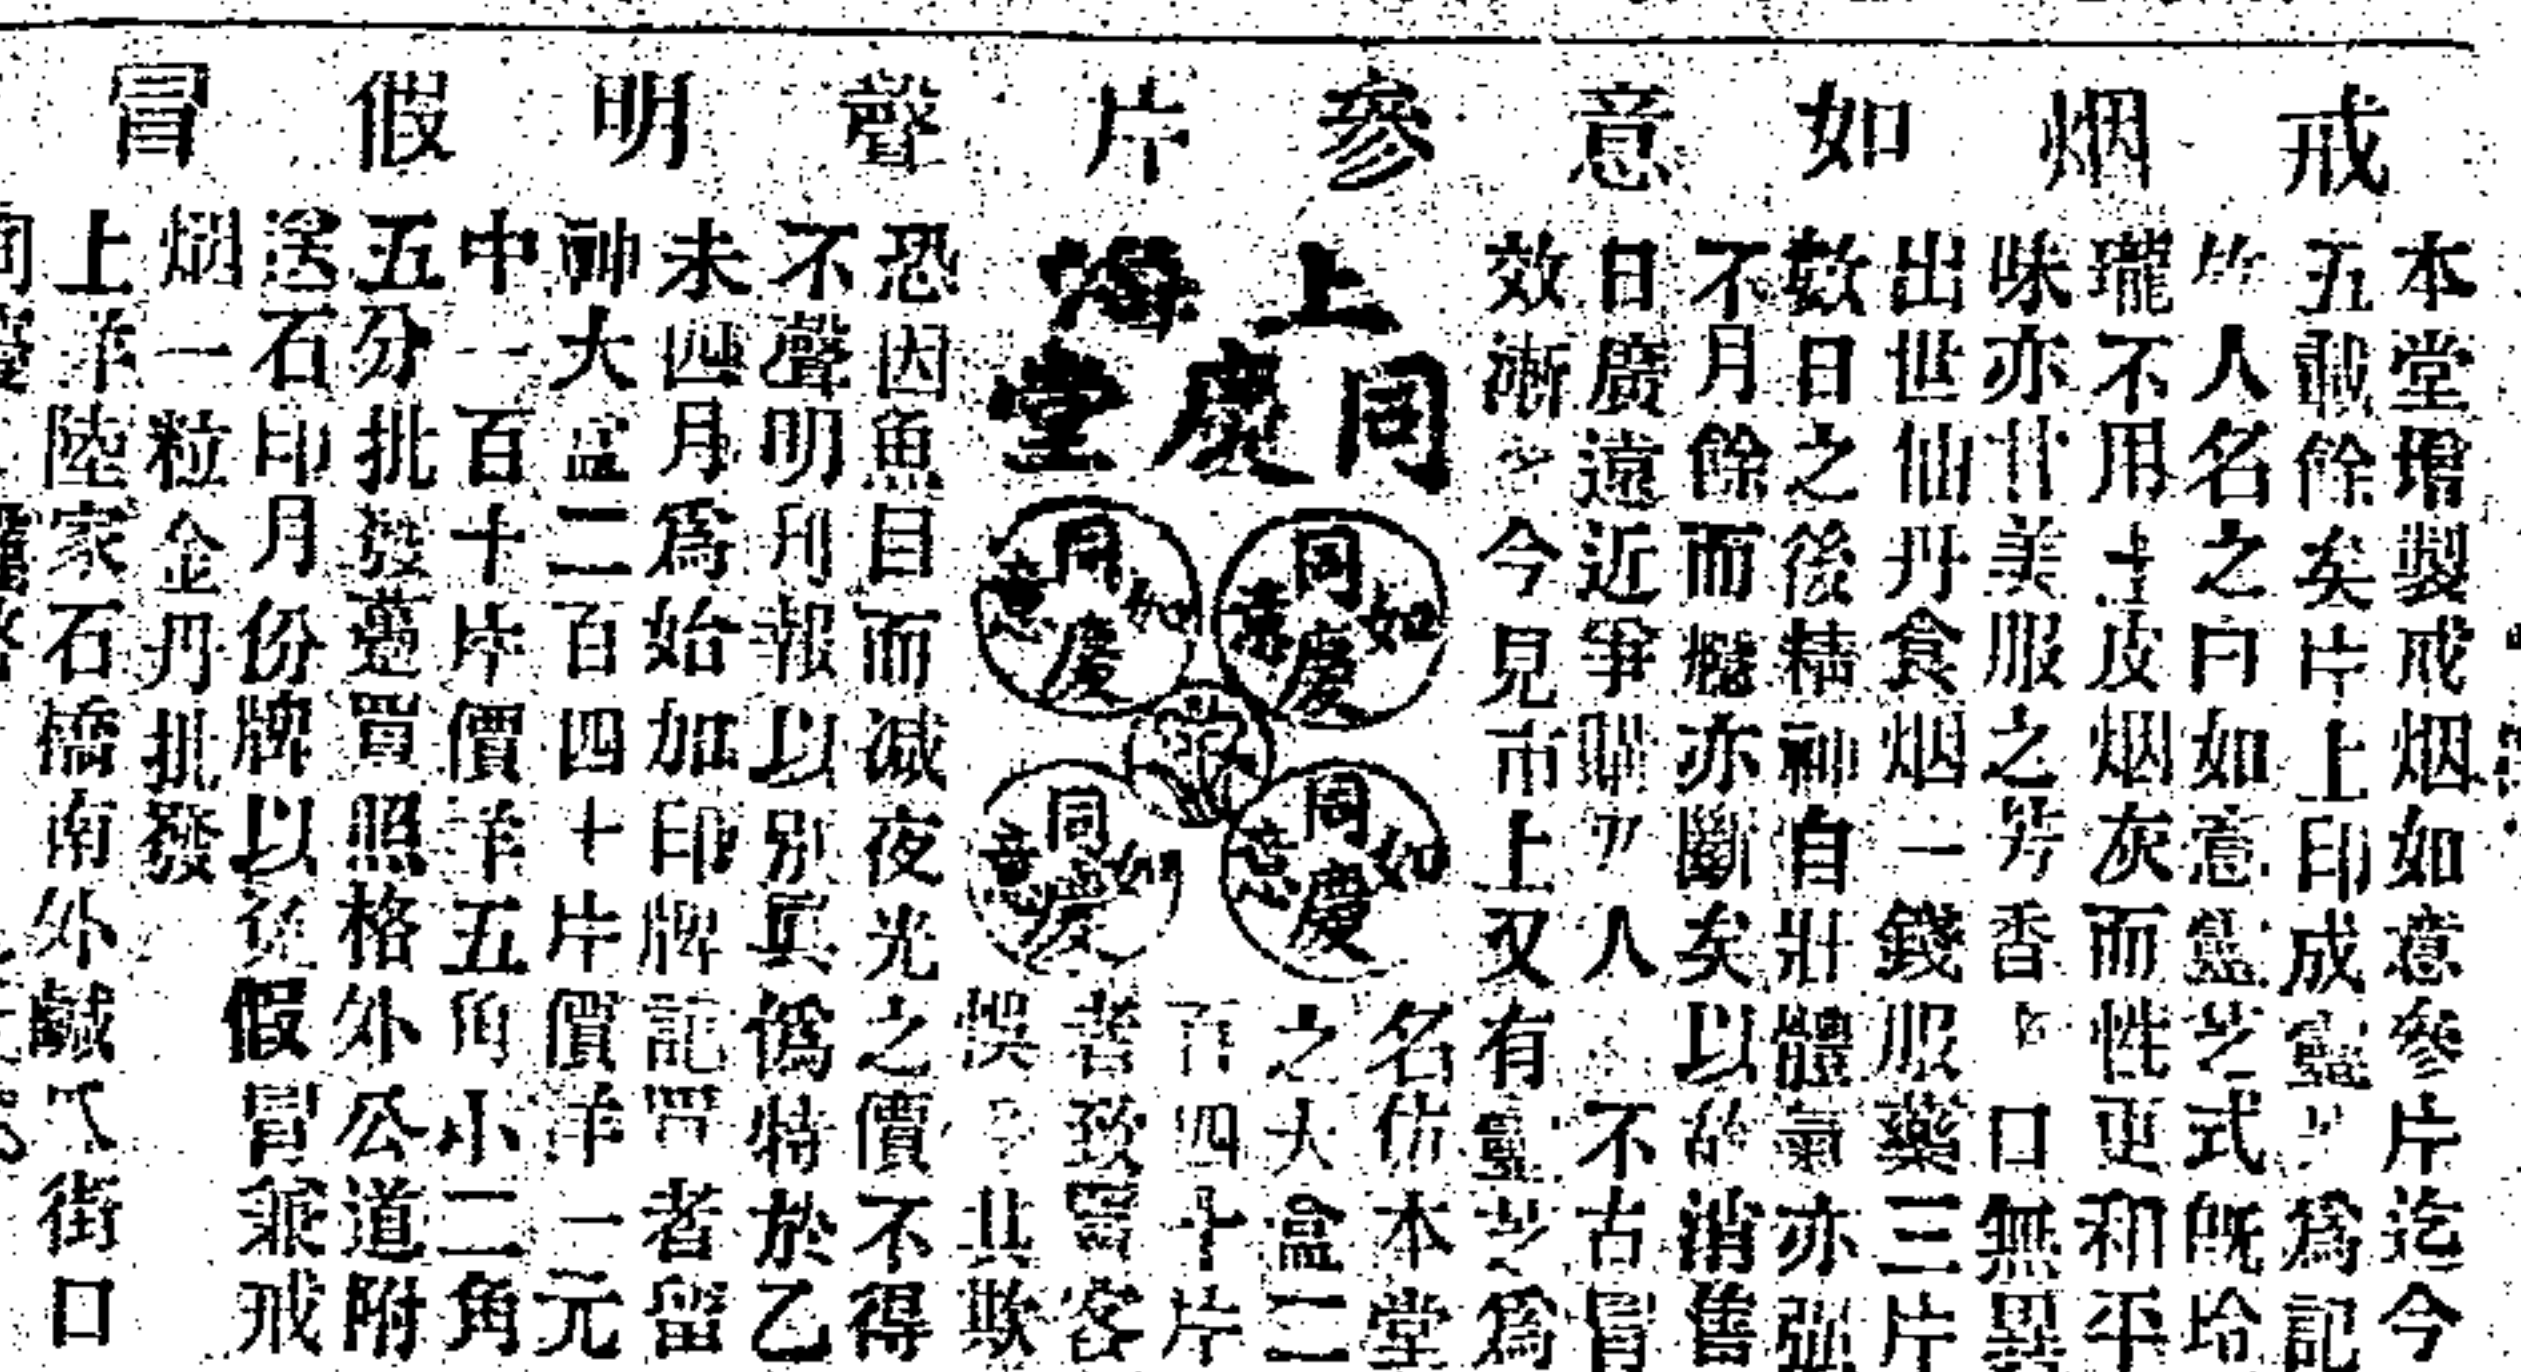 戒烟如意參片聲明假冒
本堂增製戒烟如意參片迄今
五載餘矣片上印成靈芝爲記
人名之曰如意靈芝式旣玲
瓏不用土皮烟灰而性更和平
味亦甘美服之芳香口無異
出世仙丹食烟一錢服藥三片
数日之後精神自壯體氣亦強
不月餘而癮亦斷矣以故消售
日廣遠近爭購人不古冒
效漸今見市上又有靈芝爲
上海
同慶堂
同慶如意
同慶如意
同慶如意
同慶如意
名仿本堂
之大盒二
百四十片
者致買客
悞其欺
恐因魚目而減夜光之價不得
不聲明刋報以别眞僞特於乙
未四月爲始加印牌記買者留
神大盒二百四十片價洋一元
中一百十片價洋五角小二角
五分批發躉買照格外公道附
送石印月份牌以免假冒兼戒
烟一粒金丹批發
上洋陸家石橋南外鹹瓜街口